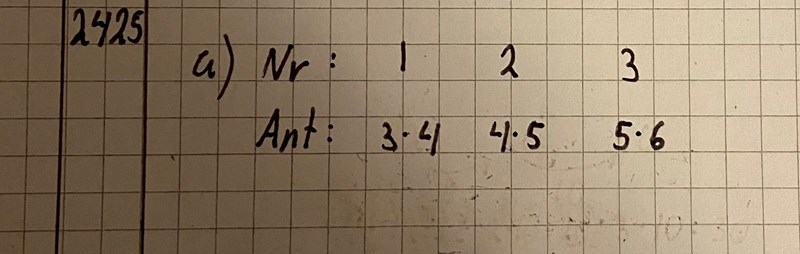 2425
a) Nr: 1 2 3
Ant: 3·4 4·5 5·6